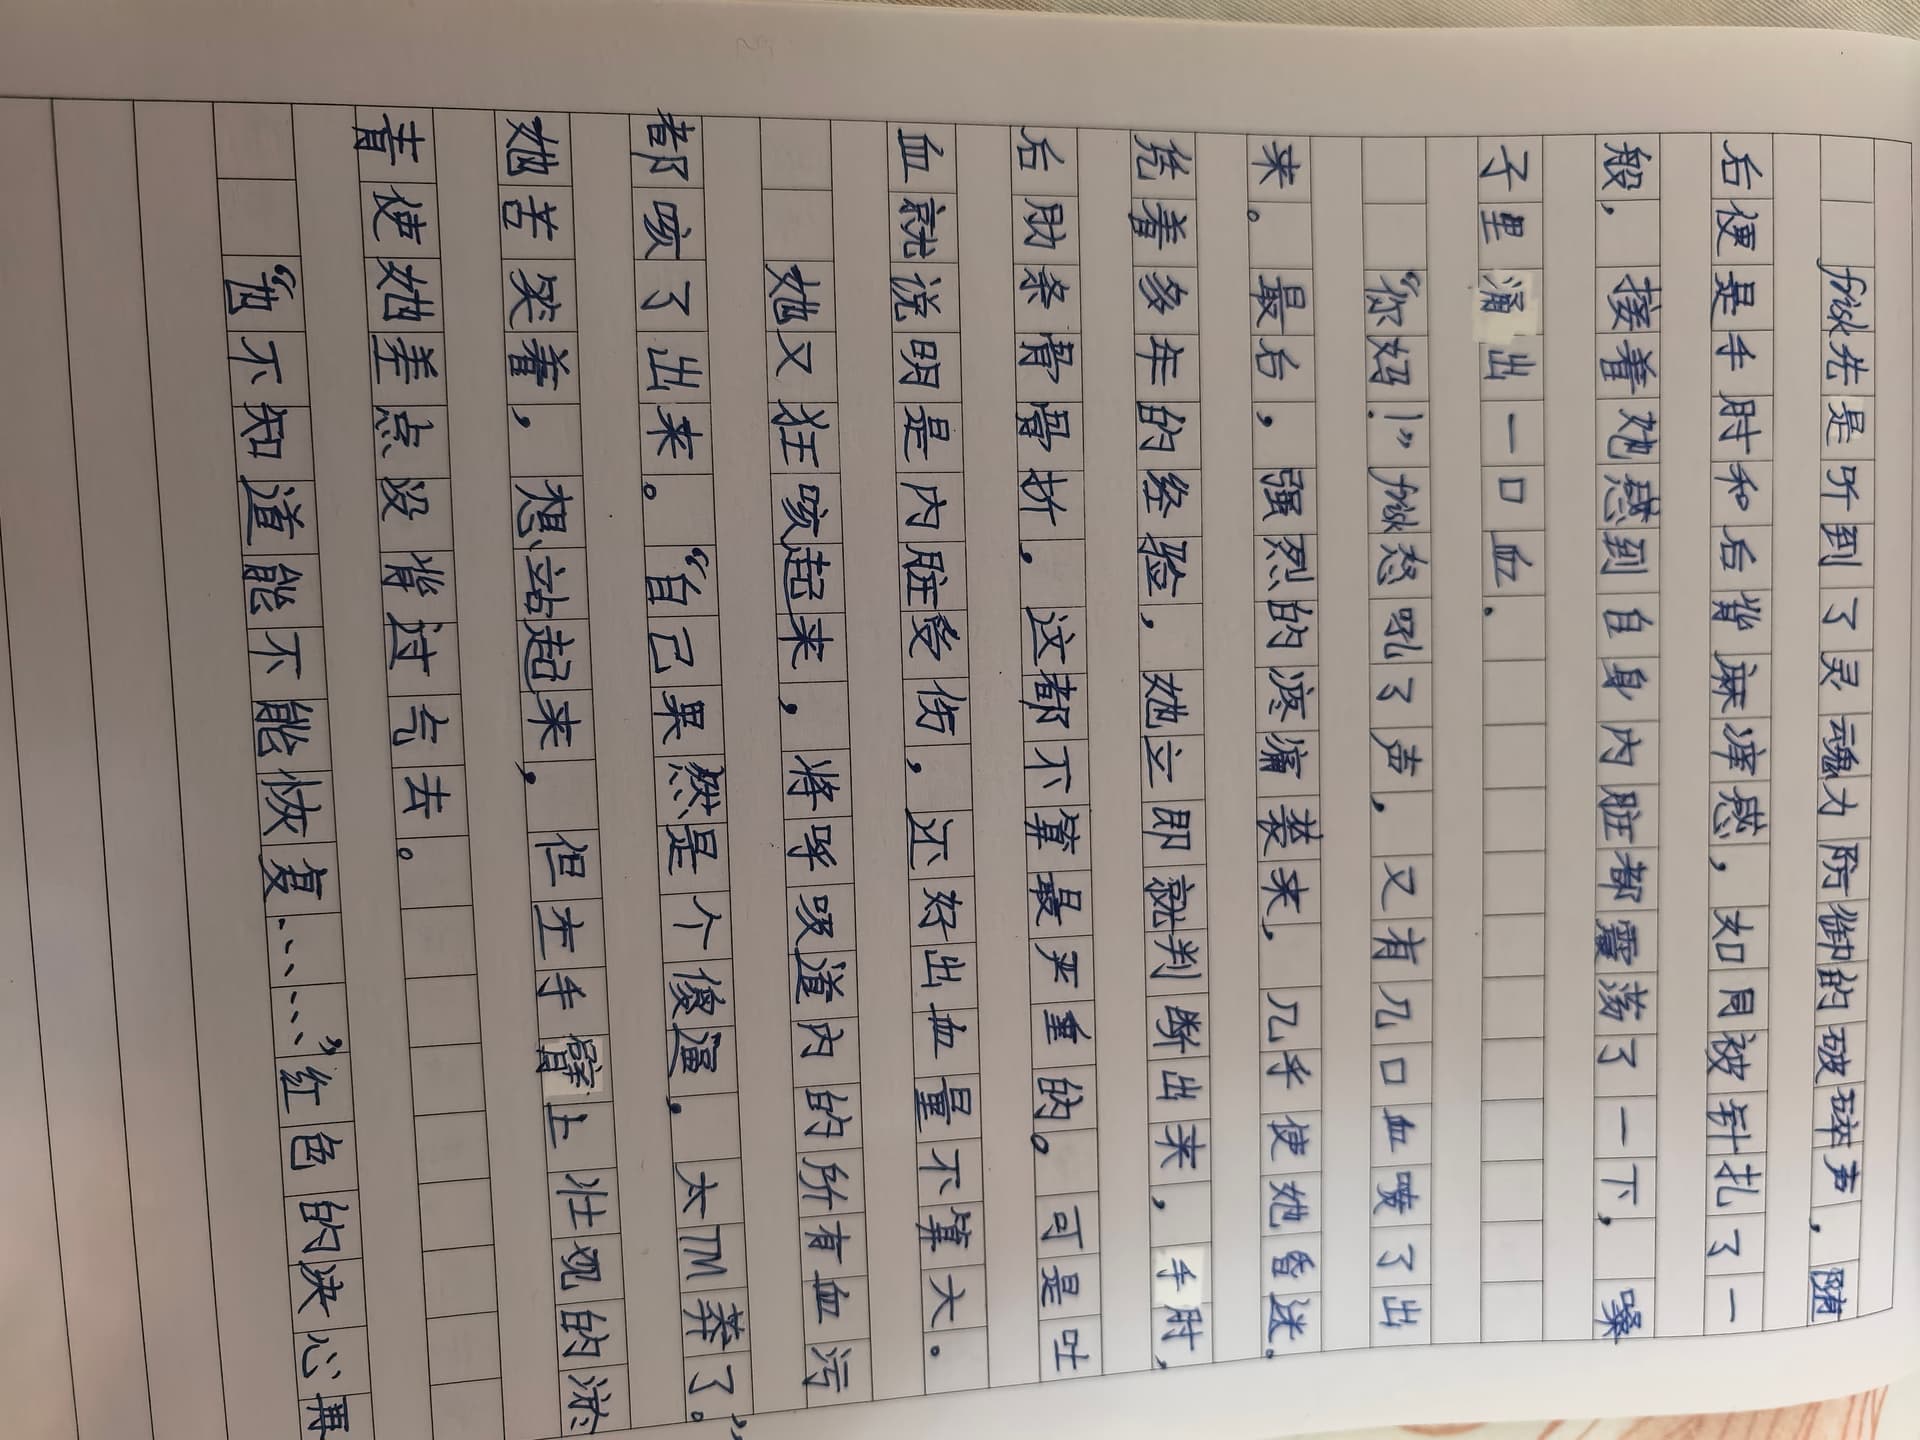 frisk先是听到了灵魂力防御的破碎声，随
后便是手肘和后背麻痒感，如同被针扎了一
般，接着她感到自身内脏都震荡了一下，嗓
子里涌出一口血.
“你妈！”frisk怒吼了声，又有几口血喷了出
来。最后，强烈的疼痛袭来，几乎使她昏迷。
凭着多年的经验，她立即就判断出来，手肘，
后肋条骨骨折。这都不算最严重的。可是吐
血就说明是内脏受伤，还好出血量不算大。
她又狂咳起来，将呼吸道内的所有血污
都咳了出来。“自己果然是个傻逼，太TM莽了。”
她苦笑着，想站起来，但左手臂上壮观的淤
青使她差点没背过气去。
“也不知道能不能恢复……”红色的决心再